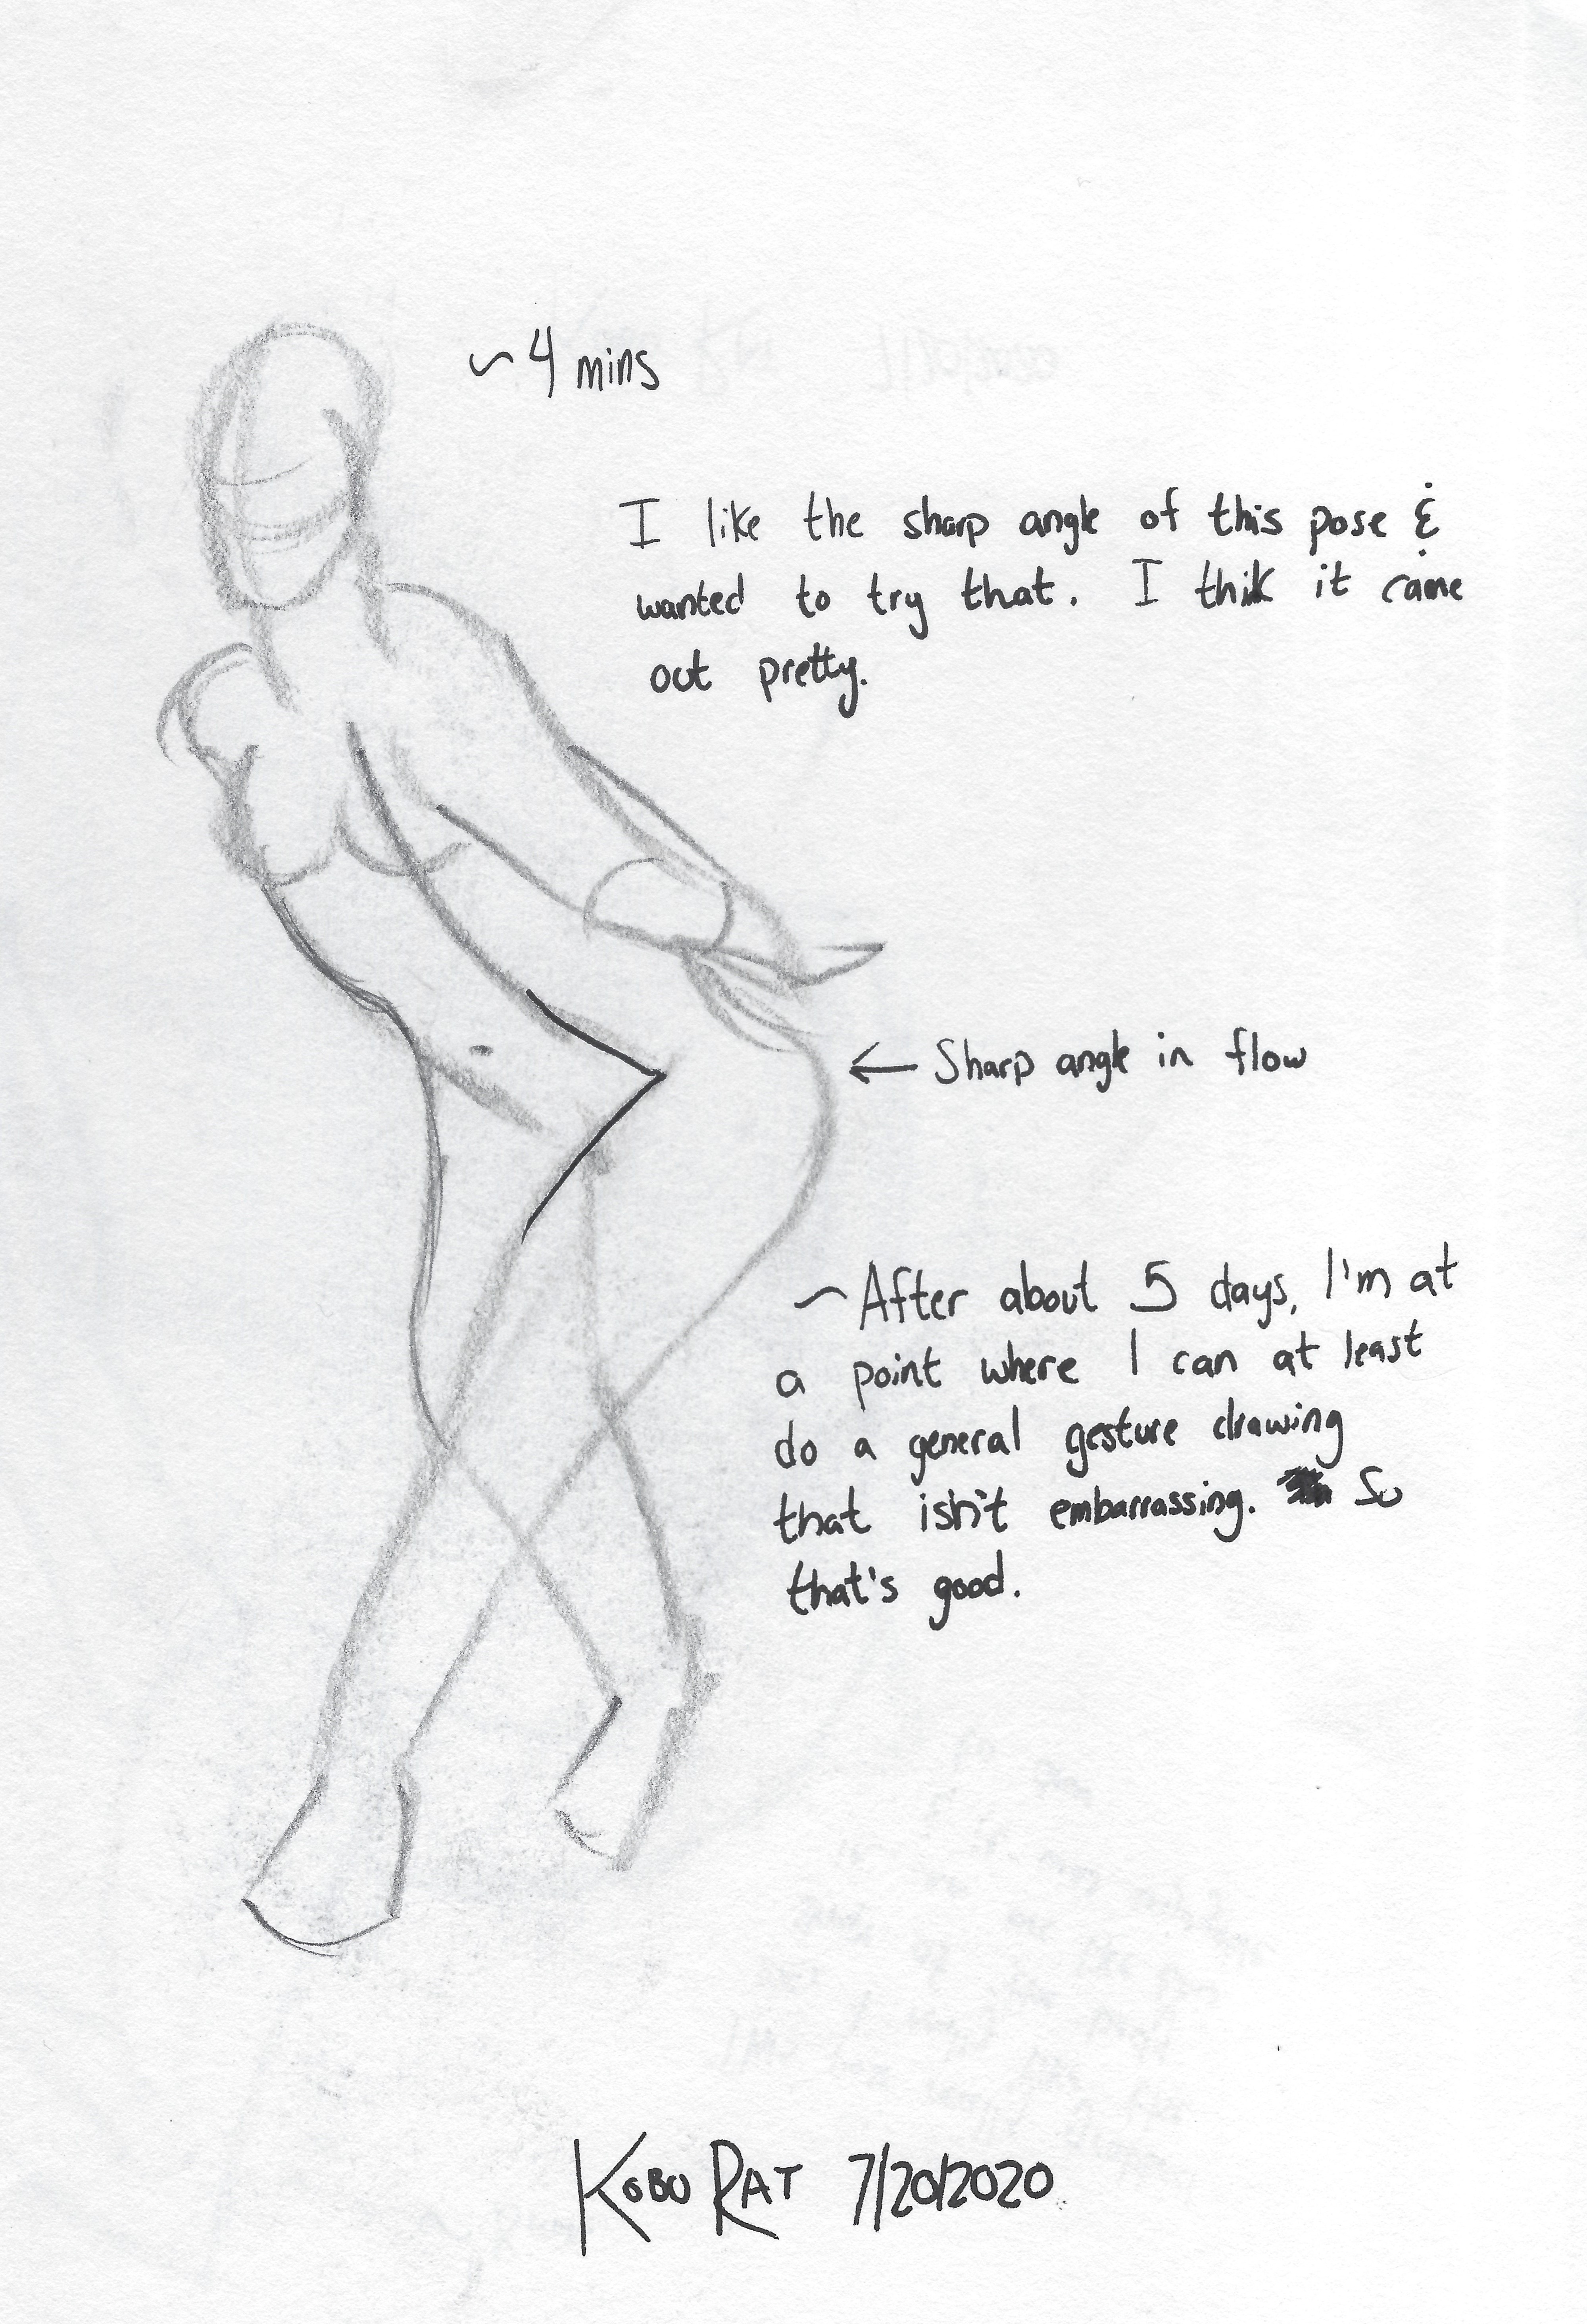 ~4 mins
I like the sharp angle of this pose &
wanted to try that. I thik it came
out pretty.
← Sharp angle in flow
~After about 5 days, I'm at
a point where I can at least
do a general gesture drawing
that isn't embarrassing. So
that's good.
KOBU RAT 7/20/2020